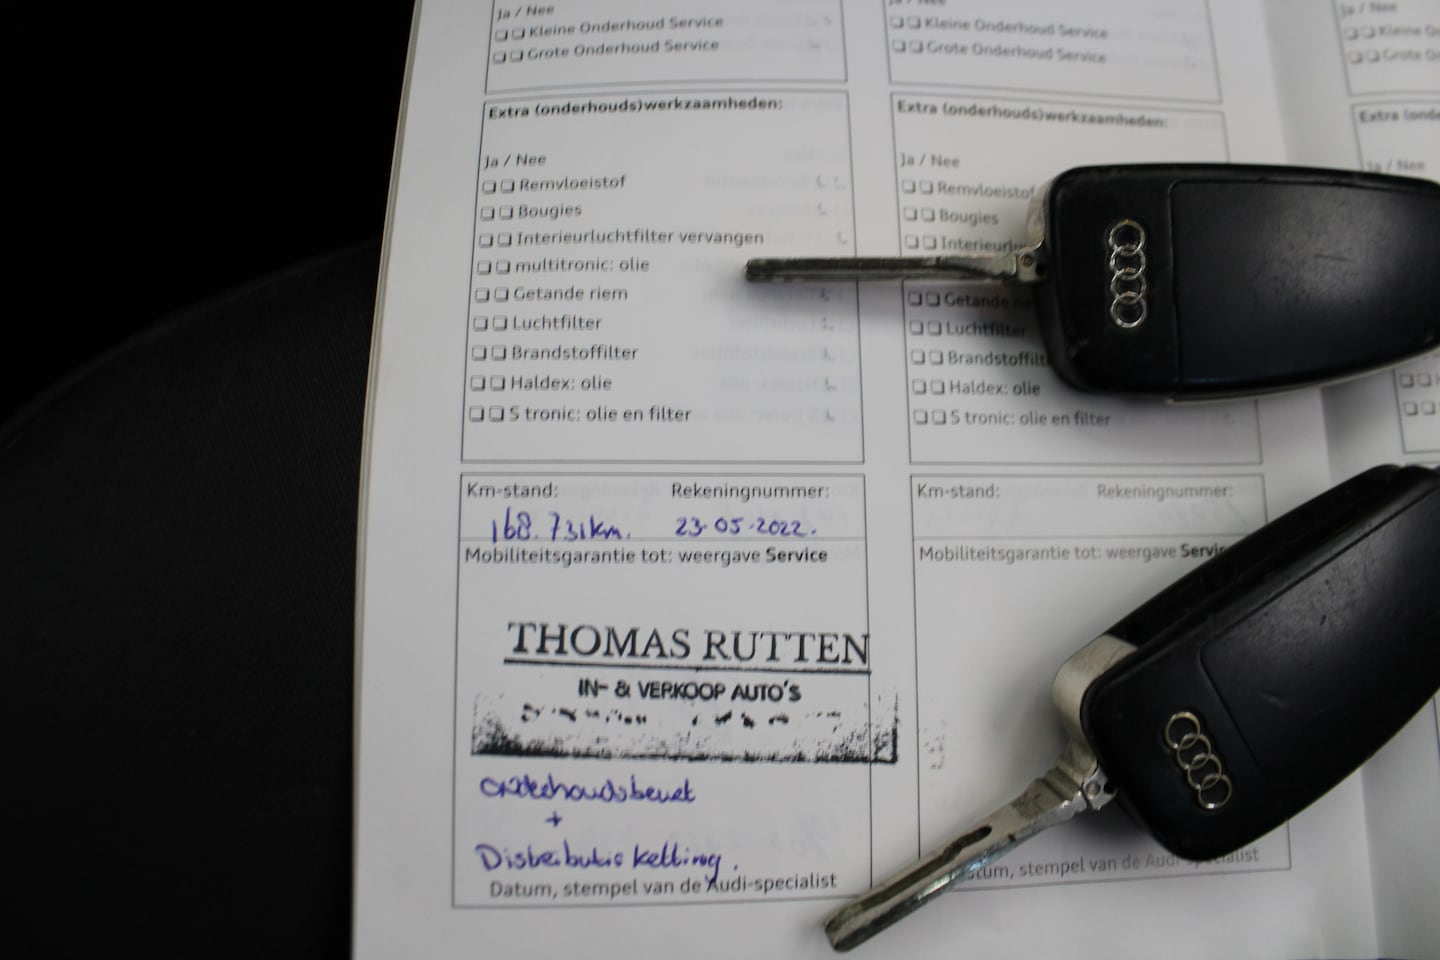 Ja / Nee
Kleine Onderhoud Service
Grote Onderhoud Service
Extra (onderhouds)werkzaamheden:
Ja / Nee
Remvloeistof
Bougies
Interieurluchtfilter vervangen
multitronic: olie
Getande riem
Luchtfilter
Brandstoffilter
Haldex: olie
S tronic: olie en filter
Km-stand: Rekeningnummer:
168.731km. 23-05-2022.
Mobiliteitsgarantie tot: weergave Service
THOMAS RUTTEN
IN- & VERKOOP AUTO'S
onderhoudsbeurt
+
Distributie ketting.
Datum, stempel van de Audi-specialist
Ja / Nee
Kleine Onderhoud Service
Grote Onderhoud Service
Extra (onderhouds)werkzaamheden:
Ja / Nee
Remvloeistof
Bougies
Getande rie
Luchtfilter
Brandstoffilt
Haldex: olie
S tronic: olie en filter
Km-stand: Rekeningnummer:
Mobiliteitsgarantie tot: weergave Servic
tum, stempel van de Audi-specialist
Ja / Nee
Extra (onde
Ja / Nee